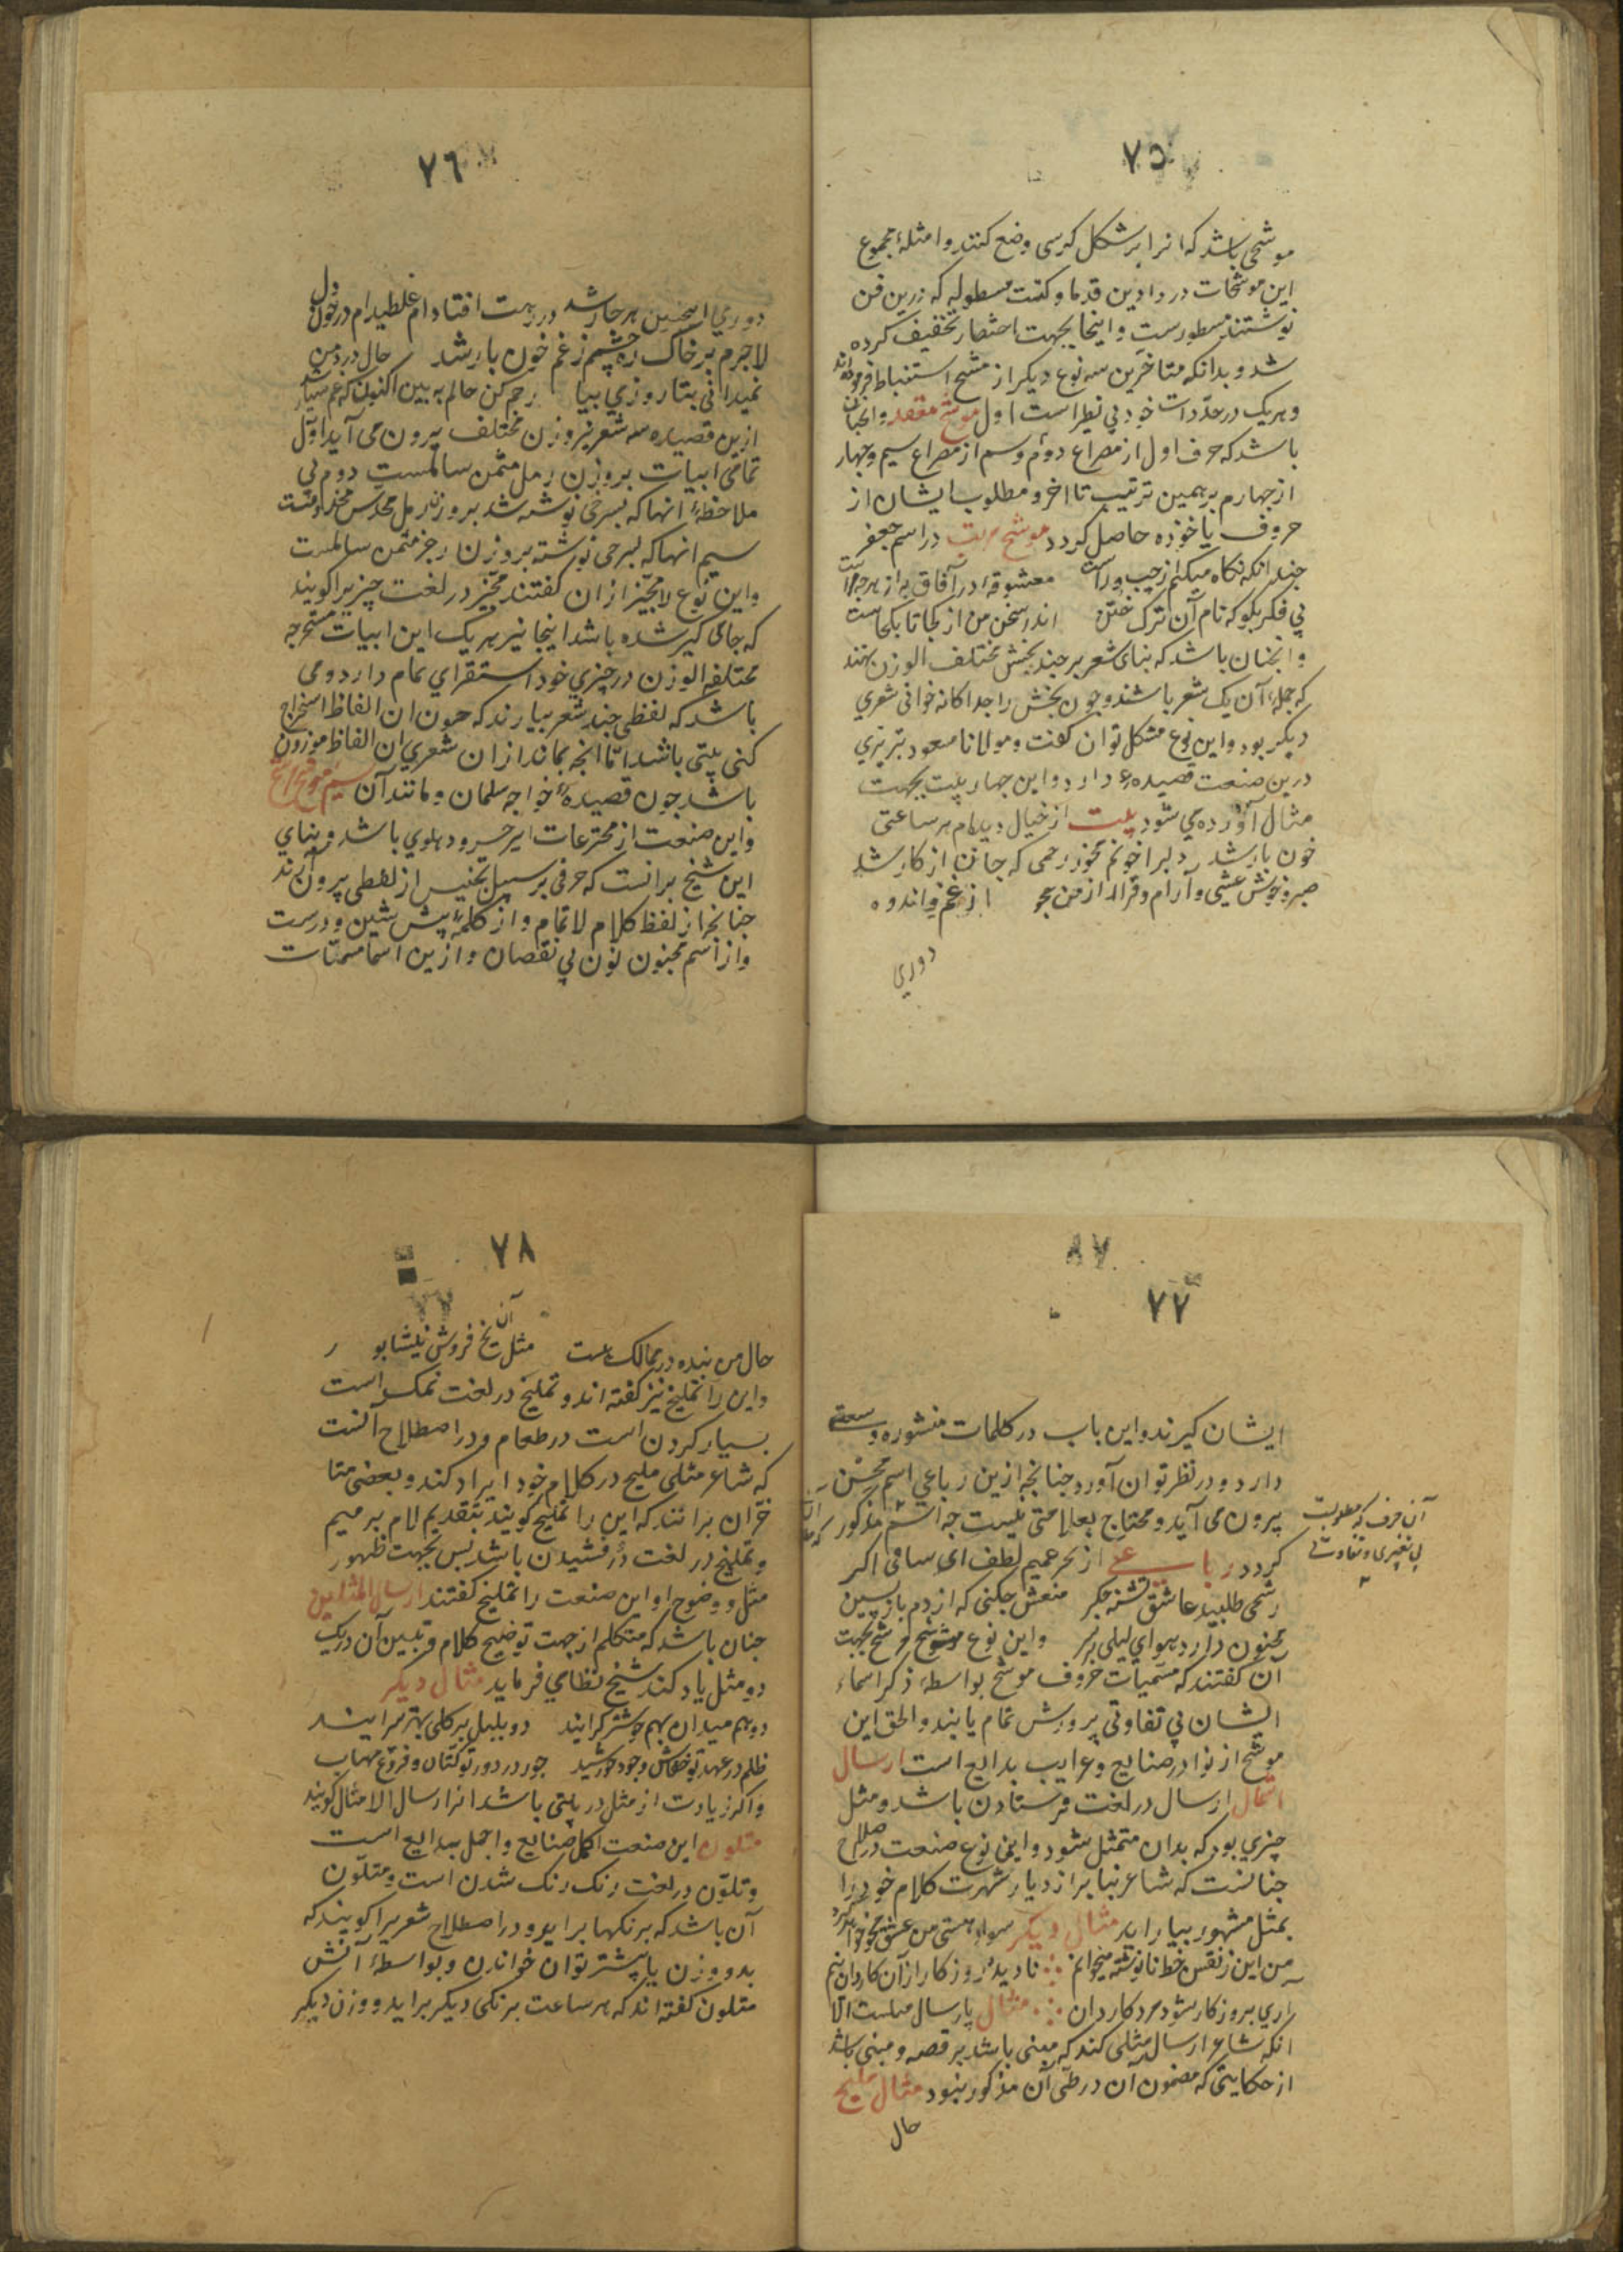 ٧٥
موشحی باشد که انرا بر شکل کرسی وضع کنند و امثلهٔ مجموع
این موشحات در دواوین قدما و کتب مسطوله که درین فن
نوشتند مسطورست و اینجا بجهت اختصار تخفیف کرده
شد و بدانکه متاخرین سه نوع دیکر از مشح استنباط فرموده اند
و هریک در حد ذات خود بی نظیر است اول موشح معقد و انجنان
باشد که حرف اول از مصراع دوم و سیم از مصراع سیم و چهار
از چهارم بر همین ترتیب تا اخر و مطلوب ایشان از
حروف ماخوذه حاصل کردد موشح بیت در اسم جعفر
چندانکه نکاه میکنم از چپ و راست معشوقه در آفاق به از هرجه مراست
بی فکر بکو که نام آن ترک ختن اندر سخن من از کجا تا بکجاست
و انجنان باشد که بنای شعر بر چند بخش مختلف الوزن نهند
که جمله آن یک شعر باشند و چون بخش را جداکانه خوانی شعری
دیکر بود و این نوع مشکل توان کفت و مولانا مسعود تبریزی
درین صنعت قصیدهٔ دارد و این چهار بیت بجهت
مثال آورده می شود بیت از خیال دیده ام هر ساعتی
خون بار شد دلبرا خونم مخور رحمی که جانم از کار شد
صبر و خوش عیشی و آرام و قرار از من از غم و اندوه
دوری
٧٦
دوری اینچنین بر جار شد در رهت افتاده ام غلطیده ام در خون دل
لاجرم بر خاک ره چشم ز غم خون بار شد حال درد من
نمیدانی بتا روزی بیا رحم کن حالم به بین اکنون که غم بسیار شد
ازین قصیده سه شعر نیز وزن مختلف بیرون می آید اول
تمامی ابیات بر وزن رمل مثمن سالمست دوم بی
ملاحظهٔ انها که بسرخی نوشته شد بر وزن رمل مسدس محذوفست
سیم انها که بسرخی نوشته بر وزن رجز مثمن سالمست
و این نوع را مجیز از ان کفتند مجیز در لغت چیزیرا کویند
که جای کیر شده باشد اینجا نیز هریک این ابیات مستخرجه
مختلفه الوزن در چیزی خود استقرای تمام دارد و می
باشد که لفظی چند شعر بیارند که چون ان الفاظ استخراج
کنی بیتی باشد اما انچه بماند از ان شعری ان الفاظ موزون
باشد چون قصیدهٔ خواجه سلمان و مانند آن سیم
و این صنعت از مخترعات امیر خسرو دهلوی باشد و بنای
این مشح بر انست که حرفی بر سبیل تجنیس از لفظی بیرون آرند
چنانچه از لفظ کلام لا تمام و از کلمهٔ پیش شین و درست
و از اسم مجنون نون بی نقصان و ازین اسما مسمیات
٨٧
٧٧
ایشان کیرند و این باب در کلمات منثوره وسعتی
دارد و در نظر توان آورد چنانچه ازین رباعی اسم محسن
بیرون می آید و محتاج بعلامتی نیست چه اسم مذکور
آن حرف که مطلوبست
بی تغییری و تفاوتی
کردد رباعی از بحر عمیم لطف ای ساقی اکر
رشحی طلبید عاشق تشنه جکر منعش چکنی که از دم بازپسین
مجنون دارد هوای لیلی بر سر و این نوع موشح مرشح بجهت
آن کفتند که مسمیات حروف موشح بواسطهٔ ذکر اسماء
ایشان بی تفاوتی پرورش تمام یابند و الحق این
موشح از نوادر صنایع و غرایب بدایع است ارسال
امثال ارسال در لغت فرستادن باشد و مثل
چیزی بود که بدان متمثل شود و این نوع صنعت در اصطلاح
چنانست که شاعر بنا بر ازدیاد شهرت کلام خود را
بمثل مشهور بیاراید مثال دیکر سواد هستی من عشق محو خواهد کرد
من این ز نقش خط نانوشته میخوانم نادیدهٔ روزکار از آن کاردان نیم
آری بروزکار شود مرد کاردان مثال بارسال مثلست الا
انکه شاعر ارسال مثلی کند که مبنی باشد بر قصه و مبنی باشد
از حکایتی که مضمون آن در طی آن مذکور نبود مثال ملیح
حال
٧٨
حال من بنده در ممالک هست مثل آن یخ فروش نیشابور
و این را تملیح نیز کفته اند و تملیح در لغت نمک است
بسیار کردن است در طعام و در اصطلاح آنست
که شاعر مثلی ملیح در کلام خود ایراد کند و بعضی متا
خران برانند که این را تملیح کویند بتقدیم لام بر میم
و تملیح در لغت درفشیدن باشد پس بجهت ظهور
مثل و وضوح او این صنعت را تملیح کفتند ارسال المثلین
چنان باشد که متکلم از جهت توضیح کلام و تبیین آن در یک
دو مثل یاد کند شیخ نظامی فرماید مثال دیکر
دو هم میدان بهم خوشتر کرایند دو بلبل بر کلی بهتر سرایند
ظلم در عهد تو خفاش وجود خورشید جور در دور تو کتان و فروغ مهتاب
و اکر زیادت از مثل در بیتی باشد انرا ارسال الامثال کویند
متلون این صنعت اکمل صنایع و اجمل بدایع است
و تلون در لغت رنک رنک شدن است و متلون
آن باشد که برنکها براید و در اصطلاح شعریرا کویند که
بدو وزن یا بیشتر توان خواندن و بواسطهٔ آنش
متلون کفته اند که هر ساعت برنکی دیکر براید و وزن دیکر